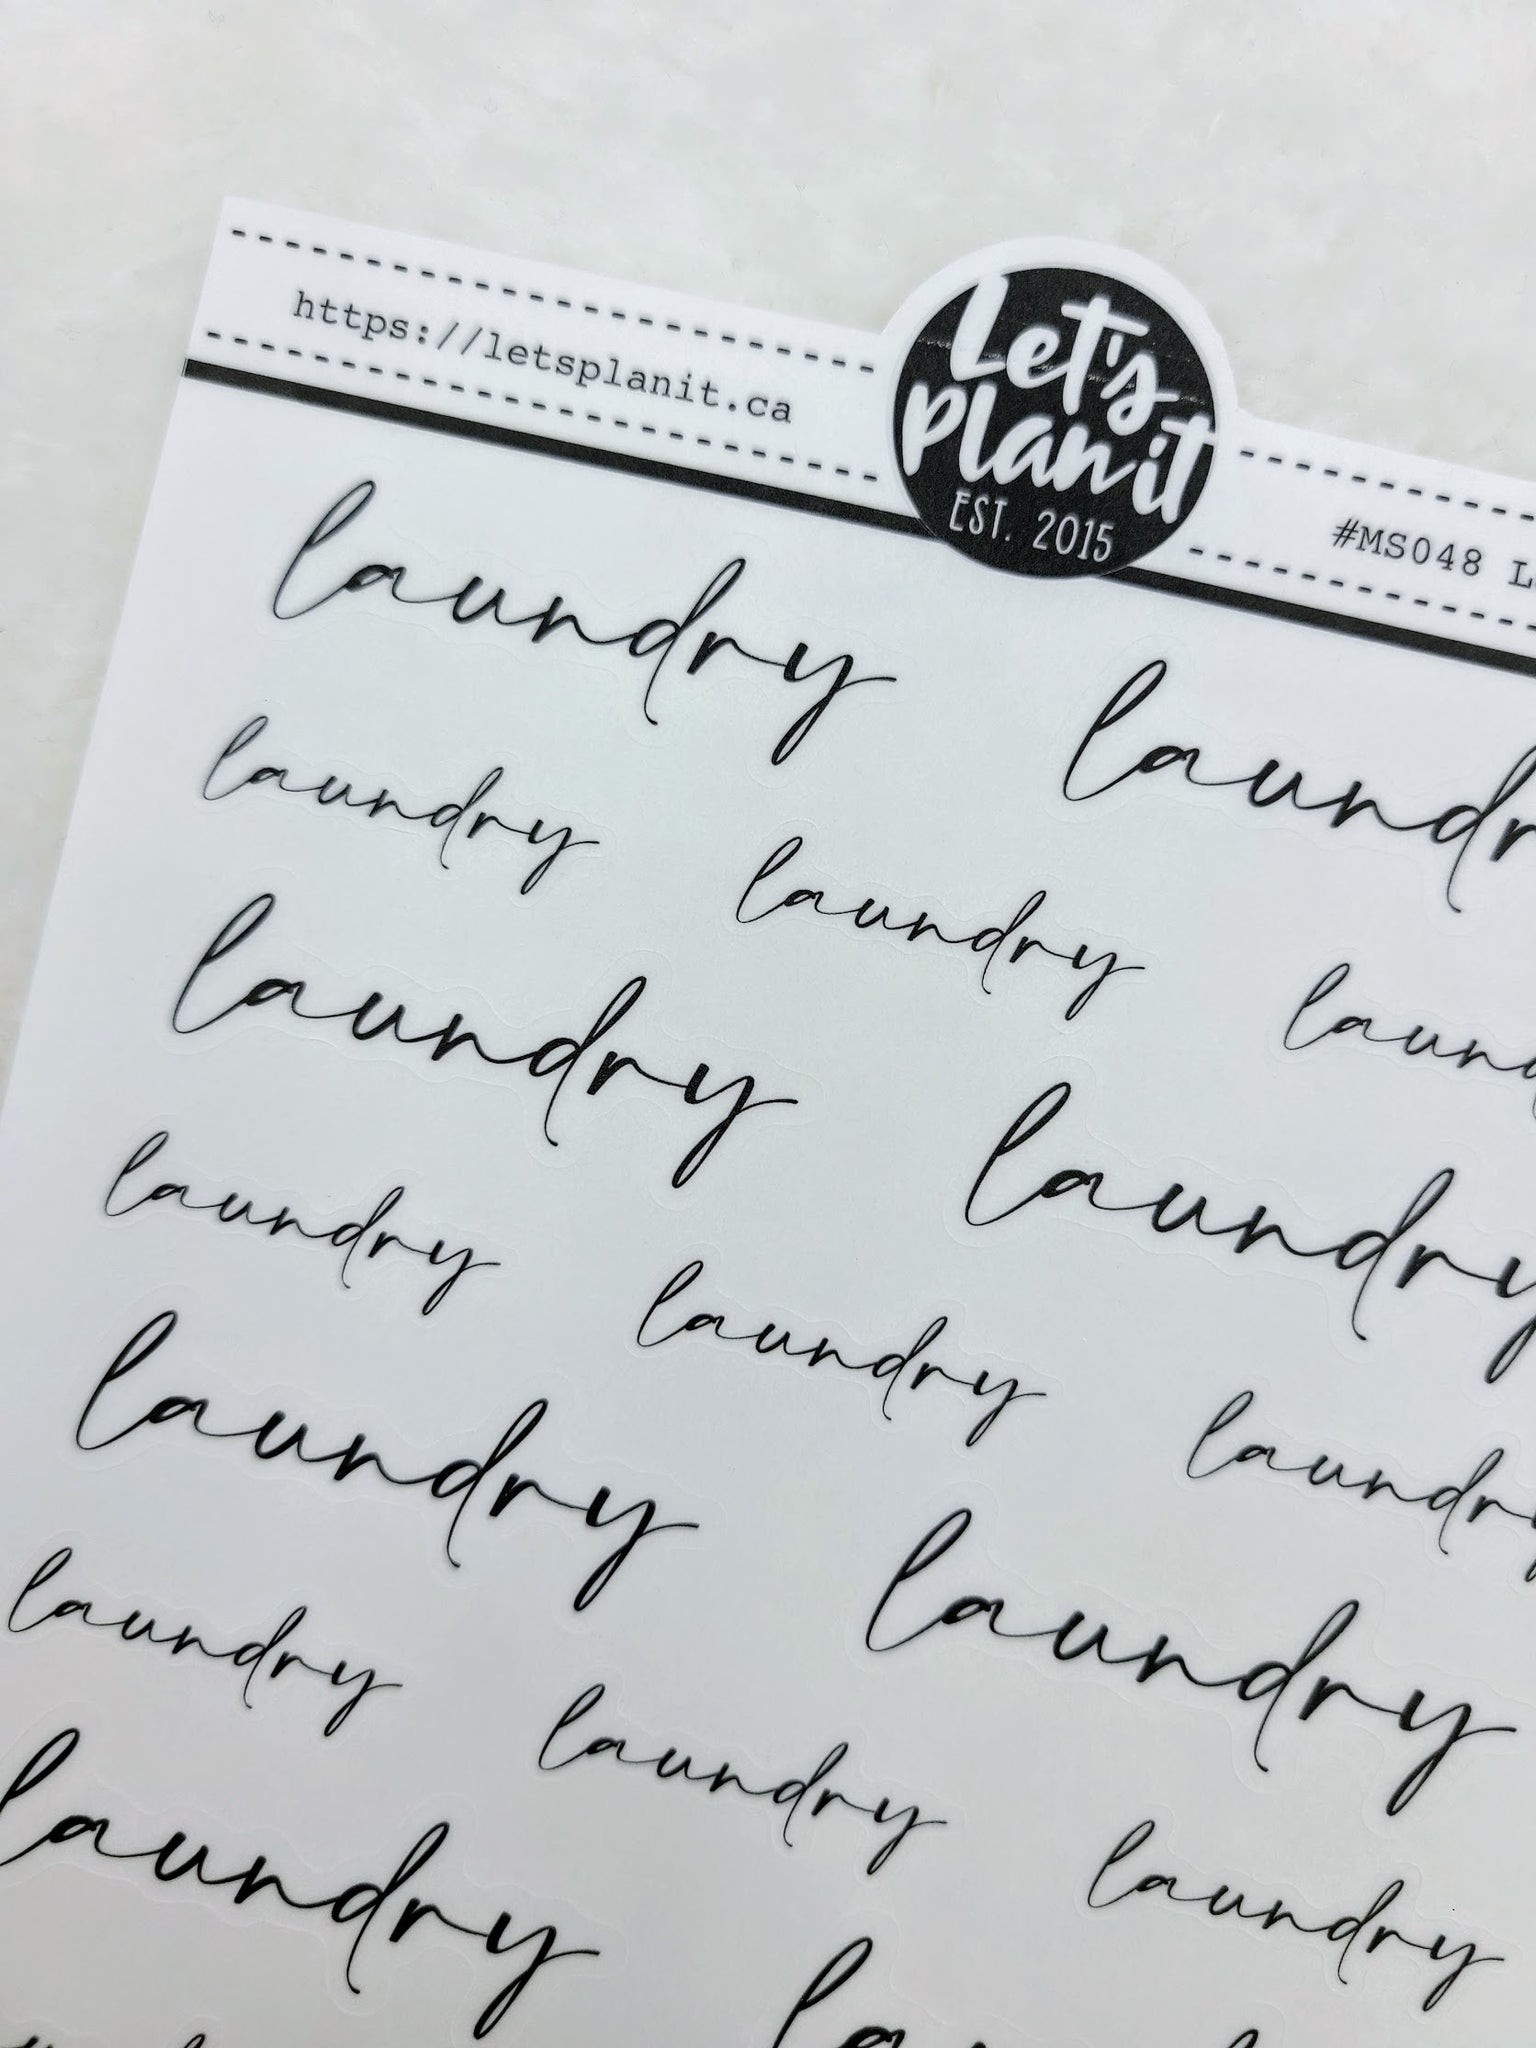 https://letsplanit.ca
Let's
Plan it
EST. 2015
#MS048 L
laundry laundr
laundry laundry laund
laundry laundry
laundry laundry laundry
laundry laundry
laundry laundry laundry
laundry